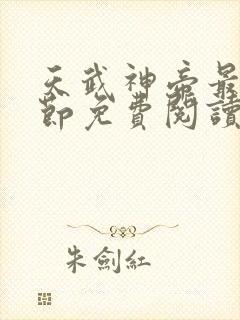 天武神帝最
節免費閱讀
朱劍紅